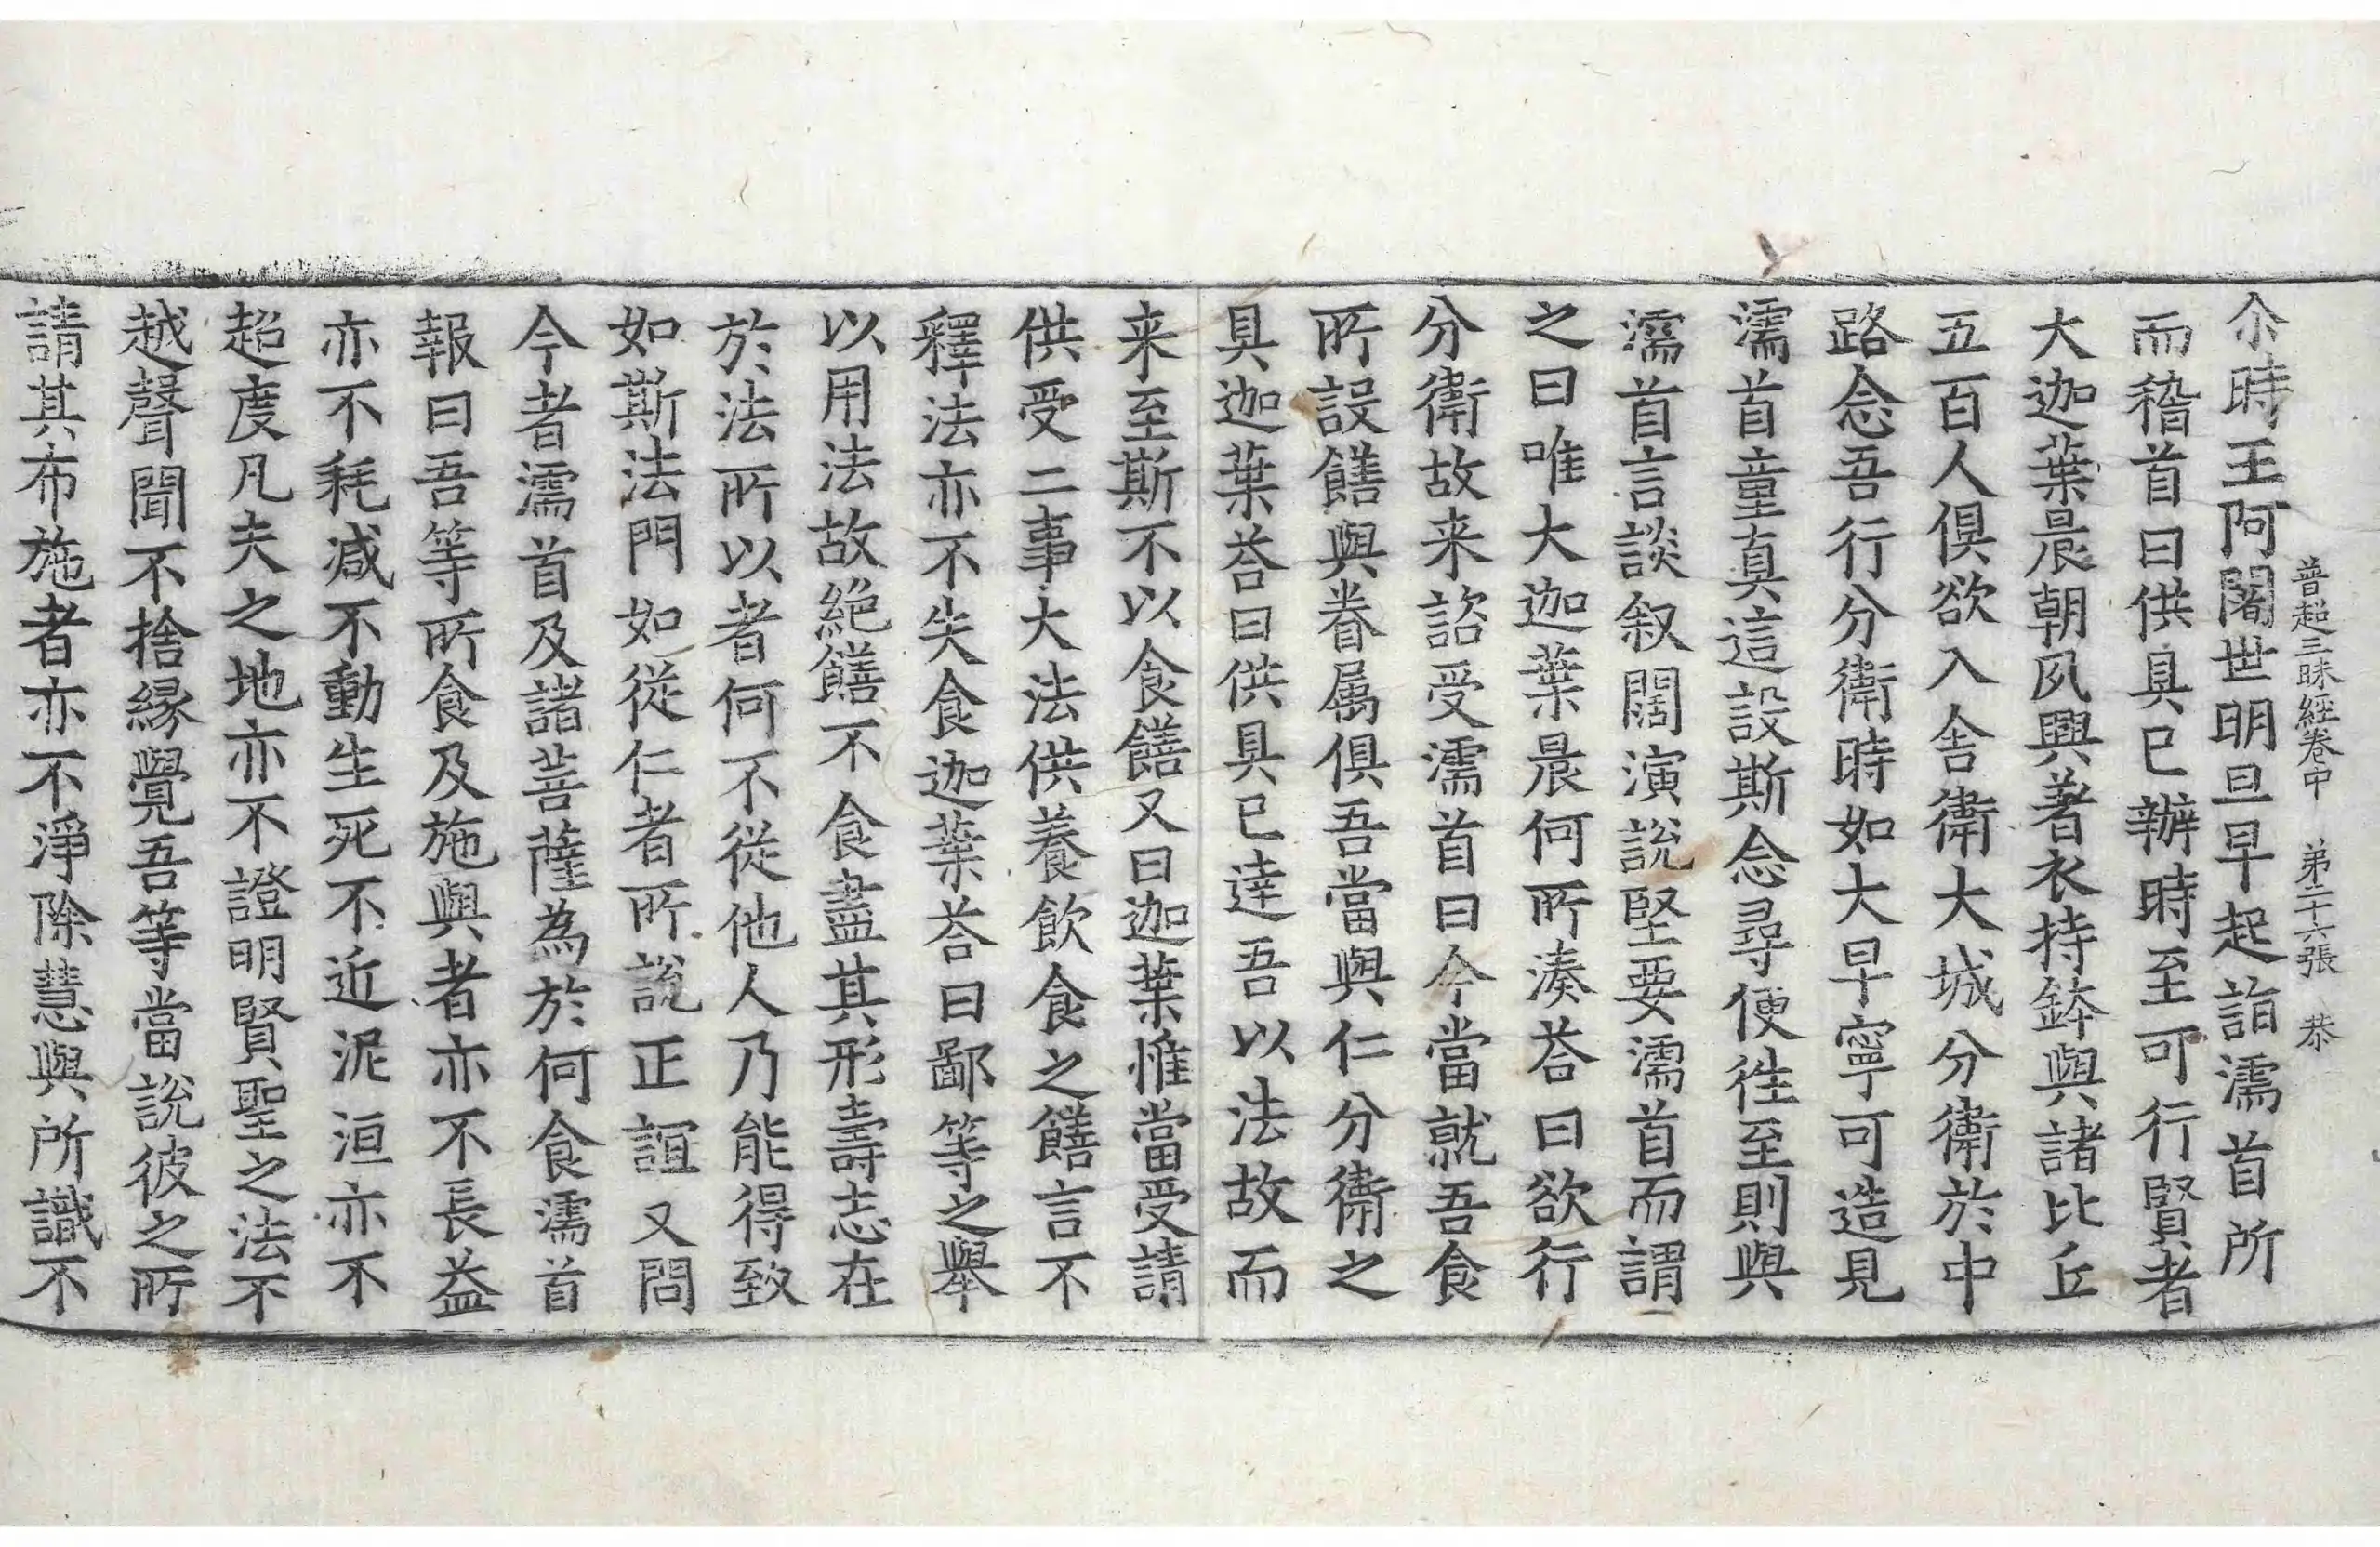 普超三昧經卷中　弟二十六張　恭
尒時王阿闍世明旦早起詣濡首所
而稽首曰供具已辦時至可行賢者
大迦葉晨朝夙興著衣持鉢與諸比丘
五百人俱欲入舍衛大城分衛於中
路念吾行分衛時如大早寧可造見
濡首童真這設斯念尋便徃至則與
濡首言談叙闊演說堅要濡首而謂
之曰唯大迦葉晨何所湊荅曰欲行
分衛故来諮受濡首曰今當就吾食
所設饍與眷属俱吾當與仁分衛之
具迦葉荅曰供具已達吾以法故而
来至斯不以食饍又曰迦葉惟當受請
供受二事大法供養飲食之饍言不
釋法亦不失食迦葉荅曰鄙等之舉
以用法故絕饍不食盡其形壽志在
於法所以者何不從他人乃能得致
如斯法門如從仁者所說正誼又問
今者濡首及諸菩薩為於何食濡首
報曰吾等所食及施與者亦不長益
亦不耗減不動生死不近泥洹亦不
超度凡夫之地亦不證明賢聖之法不
越聲聞不捨緣覺吾等當說彼之所
請其布施者亦不淨除慧與所識不